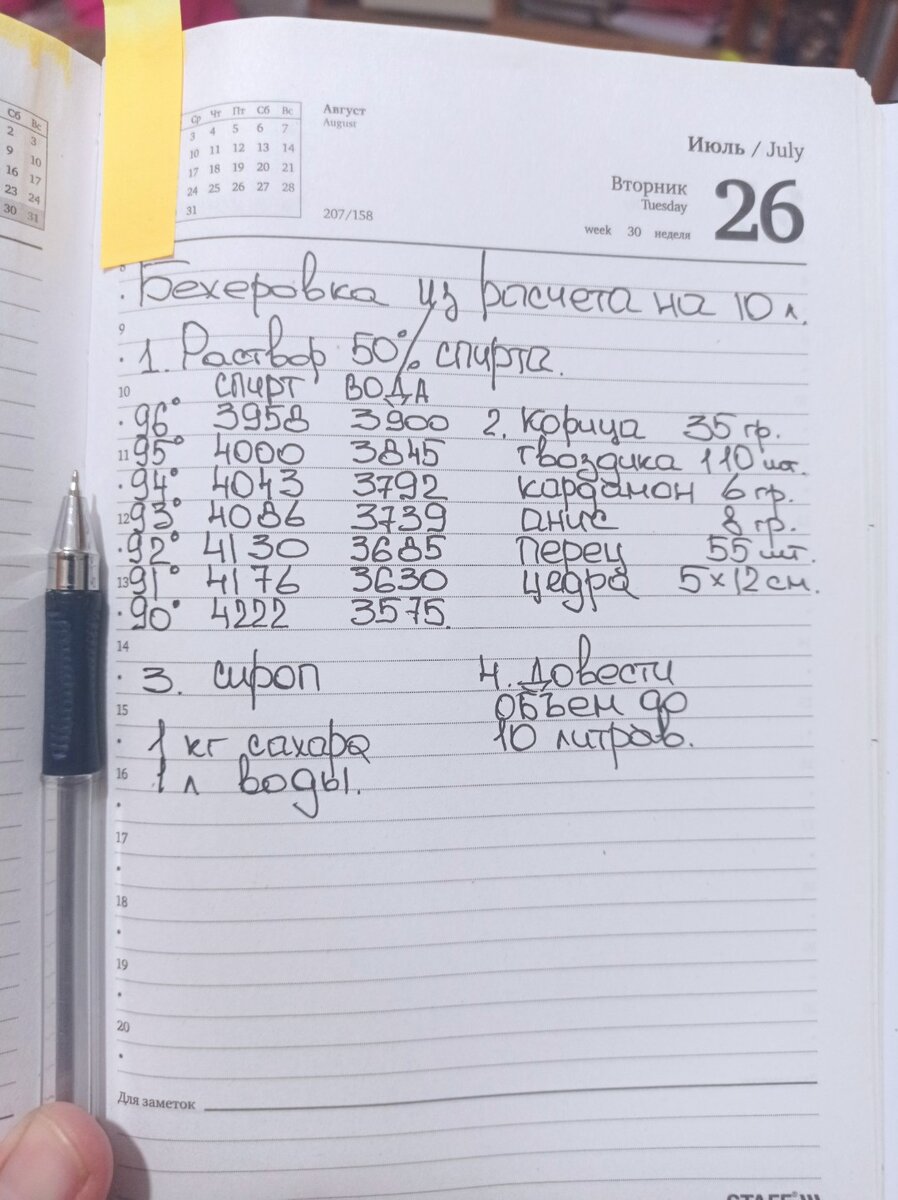 Сб Вс
2 3
9 10
16 17
23 24
30 31
Ср Чт Пт Сб Вс
3 4 5 6 7
10 11 12 13 14
17 18 19 20 21
24 25 26 27 28
31
Август
August
207/158
Июль / July
Вторник
Tuesday
26
week 30 неделя
8
Бехеровка из расчета на 10 л.
9
1. Раствор 50°/. спирта.
10
спирт вода
96° 3958 3900
11
95° 4000 3845
94° 4043 3792
12
93° 4086 3739
92° 4130 3685
13
91° 4176 3630
90° 4222 3575
2. корица 35 гр.
гвоздика 110 шт.
кардамон 6 гр.
анис 8 гр.
перец 55 шт.
цедра 5×12 см.
14
3. сироп
15
1 кг сахара
16
1 л воды.
4. Довести
объем до
10 литров.
17
18
19
20
Для заметок
STAFF